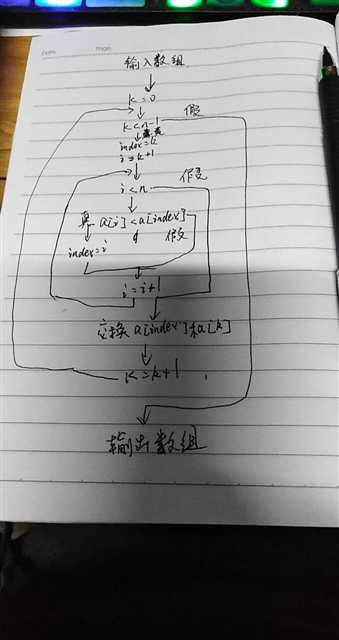 输入数组
k=0
k<n-1
假
index=k
i=k+1
i<n
假
真 a[i]<a[index]
假
index=i
i=i+1
交换a[index]和a[k]
k=k+1
输出数组